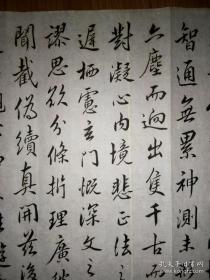 智通無累神測未
六塵而迥出隻千古而
對凝心內境悲正法之
遲栖慮玄門慨深文之
謬思欲分條析理廣彼
聞截偽續真開茲後